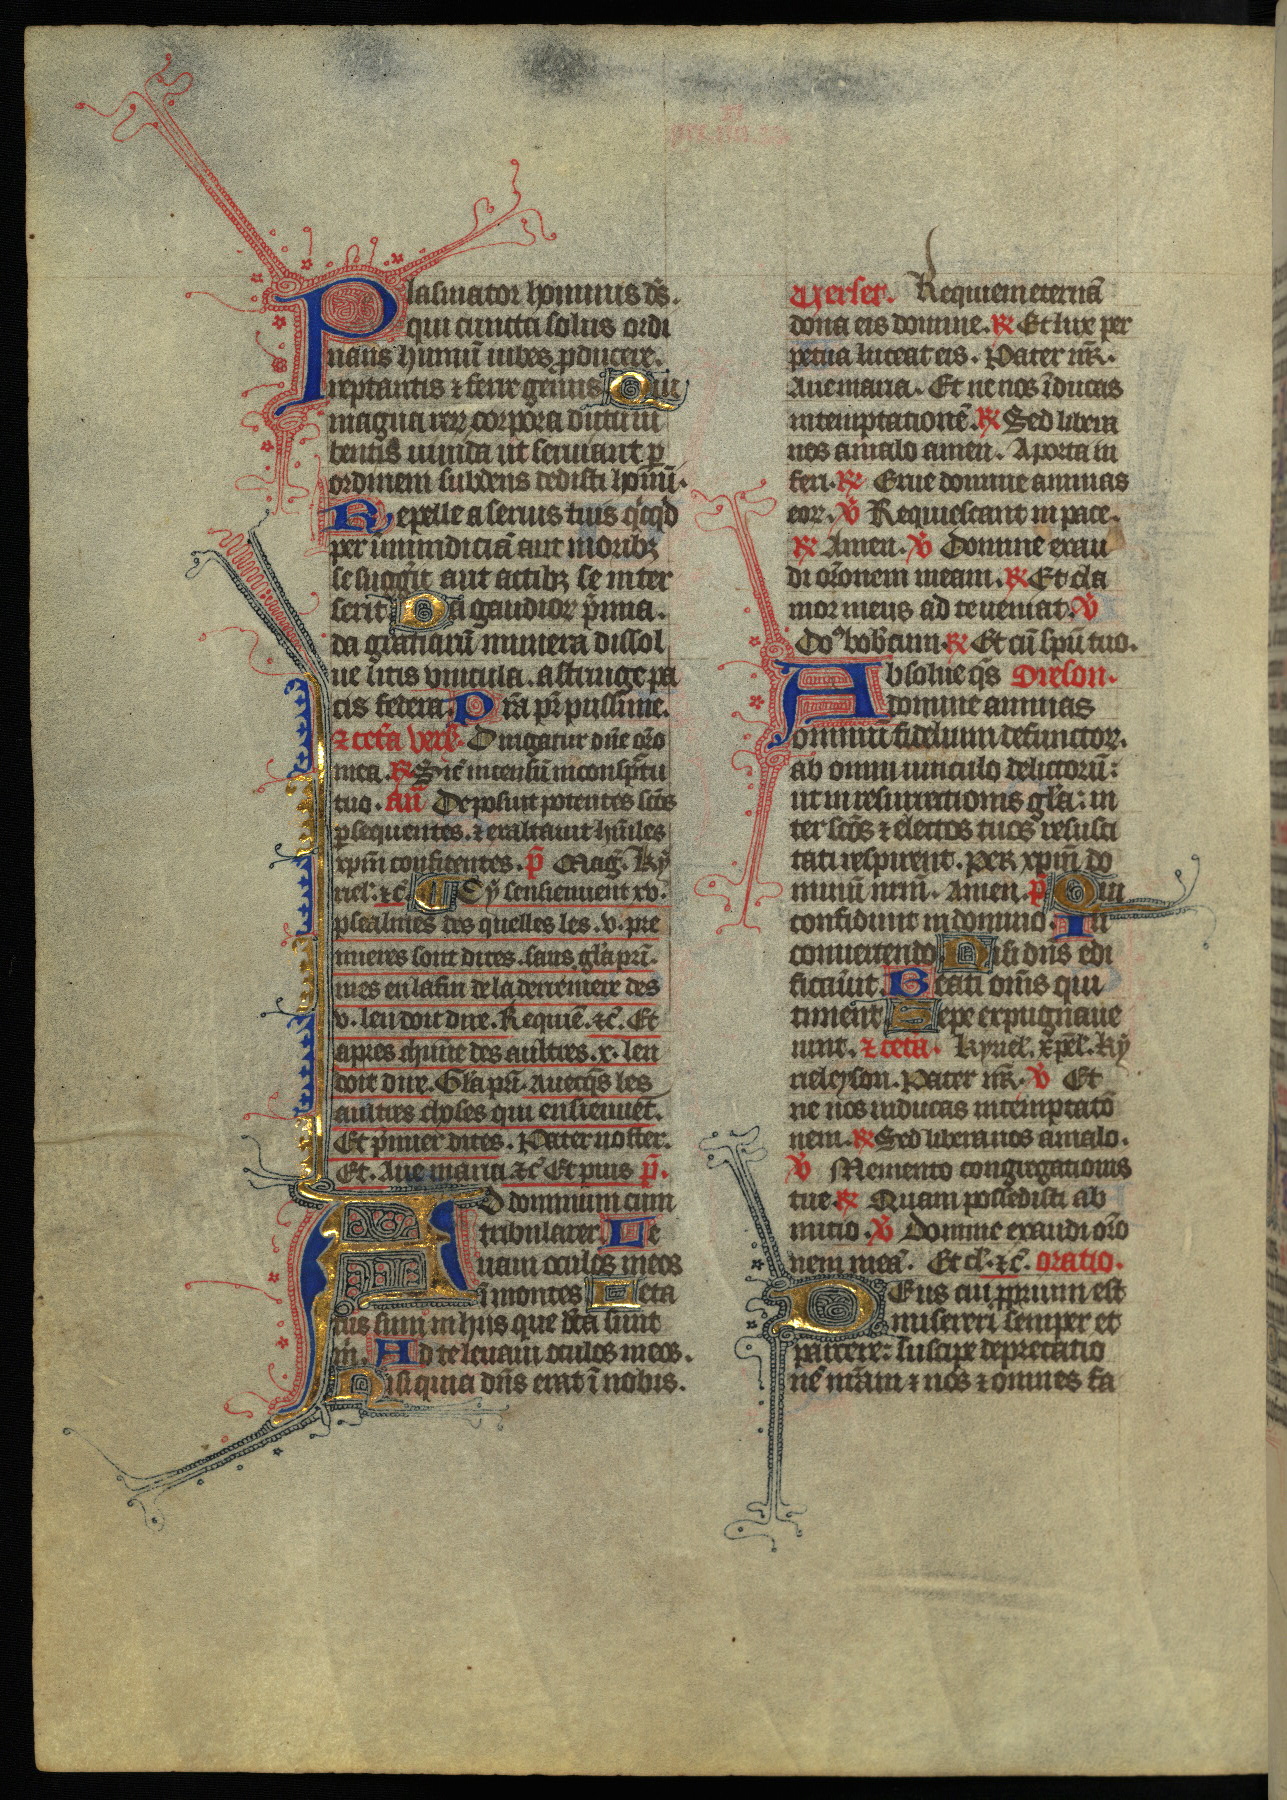 Plasmator hominis ds̄.
qui cuncta solus ordi
nans humū iubes ꝓducere.
reptantis ⁊ fere genus Qui
magna reꝝ corpora dictu iu
bentis uiuida ut seruiant ꝑ
ordinem subdens dedisti homī.
Repelle a seruis tuis qͥcqͥd
per inmūdiciā aut moribꝫ
se suggͥit aut actibꝫ se inter
serit Da gaudior p̄mia.
da gratiarū munera dissol
ue litis vincula. astringe pa
cis federa. Prā pr̄ piissime.
⁊ cetā vers̄. Dirigatur dn̄e or̄o
mea. ℟ Sic̄ incensū in conspc̄tu
tuo. an̄ Deposuit potentes sc̄os
ꝑsequentes. ⁊ exaltauit hūiles
xpm̄ confitentes. p̄ Maḡ. Ky
riel. ⁊c̄. Cy sensieuuent xv.
psealmes des quelles les .v. pre
mieres sont dites. sans gl̄a pri.
mes en la fin de la derreniere des
v. len doit dire. Requiē. ⁊c̄. Et
apres chūne des aultres .x. len
doit dire. Gl̄a pri. Auecqs̄ les
aultres choses qui ensieuuēt.
Et p̄mier dites. Pater noster.
Et. Aue maria ⁊c̄ Et puis p̄.
AD dominum cum
tribularer. Le
uaui oculos meos
ī montes Leta
tus sum in hiis que dc̄a sunt
m̄. Ad te leuaui oculos meos.
Nisi quia dn̄s erat ī nobis.
Verset. Requiem eternā
dona eis domine. ℟ Et lux per
petua luceat eis. Pater nr̄.
Aue maria. Et ne nos īducas
in temptationē. ℟ Sed libera
nos a malo amen. A porta in
feri. ℟ Erue domine animas
eor. ℣ Requiescant in pace.
℟ Amen. ℣ Domine exau
di or̄onem meam. ℟ Et cla
mor meus ad te ueniat. ℣
Do᷒ vobcum. ℟ Et cū spū tuo.
Absolue qs̄ Oreson.
domine animas
omniū fidelium defunctor.
ab omni uinculo delictorū:
ut in resurrectionis gl̄a: in
ter sc̄os ⁊ electos tuos resusci
tati respirent. Per xpm̄ do
minū nrm̄. Amen. p̄ Qui
confidunt in domino. In
conuertendo Nisi dn̄s edi
ficaūit. Beati om̄s qui
timent Sepe expugnaue
runt. ⁊ cetā. Kyriel. xp̄el. Ky
rieleyson. Pater nr̄. ℣ Et
ne nos inducas in temptatō
nem. ℟ Sed libera nos a malo.
℣ Memento congregationis
tue ℟ Quam possedisti ab
initio. ℣ Domine exaudi or̄o
nem meā. Et cl̄. ⁊c̄. oratio.
DEus cui ꝓprium est
misereri semper et
parcere: suscipe deprecatio
nē nrā̄m ⁊ nos ⁊ omnes fa